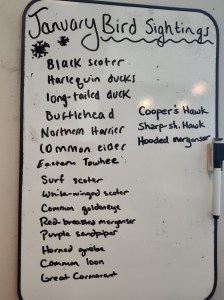 January Bird Sightings
Black scoter
Harlequin ducks
long-tailed duck
Bufflehead
Northern Harrier
Common eider
Eastern Towhee
Surf scoter
White-winged scoter
Common goldeneye
Red-breasted merganser
Purple sandpiper
Horned grebe
Common loon
Great Cormorant
Cooper's Hawk
Sharp-sh. Hawk
Hooded merganser